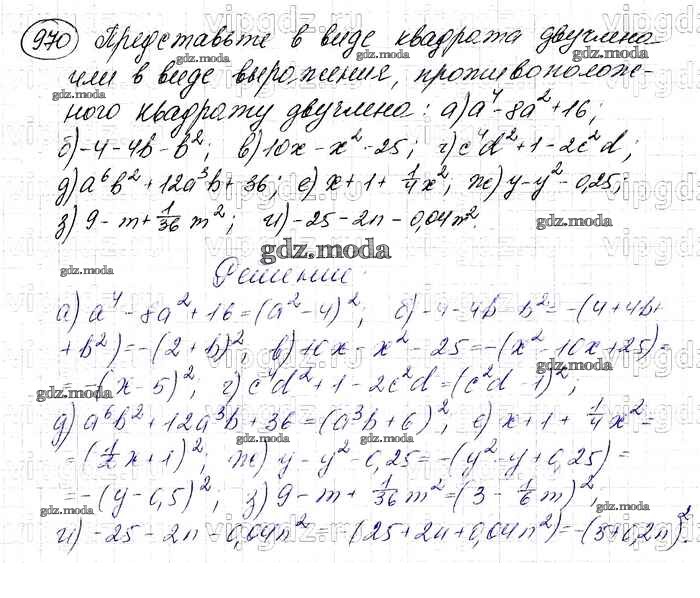 970 Представьте в виде квадрата двучлена
или в виде выражения, противополож-
ного квадрату двучлена: а) a⁴ - 8a² + 16;
б) -4 - 4b - b²; в) 10x - x² - 25; г) c⁴d² + 1 - 2c²d;
д) a⁶b² + 12a³b + 36; е) x + 1 + 1/4 x²; ж) y - y² - 0,25;
з) 9 - m + 1/36 m²; и) -25 - 2n - 0,04n².
gdz.moda
Решение:
а) a⁴ - 8a² + 16 = (a² - 4)²; б) -4 - 4b - b² = -(4 + 4b +
+ b²) = -(2 + b)²; в) 10x - x² - 25 = -(x² - 10x + 25) =
= -(x - 5)²; г) c⁴d² + 1 - 2c²d = (c²d - 1)²;
д) a⁶b² + 12a³b + 36 = (a³b + 6)²; е) x + 1 + 1/4 x² =
= (1/2 x + 1)²; ж) y - y² - 0,25 = -(y² - y + 0,25) =
= -(y - 0,5)²; з) 9 - m + 1/36 m² = (3 - 1/6 m)²,
и) -25 - 2n - 0,04n² = -(25 + 2n + 0,04n²) = -(5 + 0,2n)².